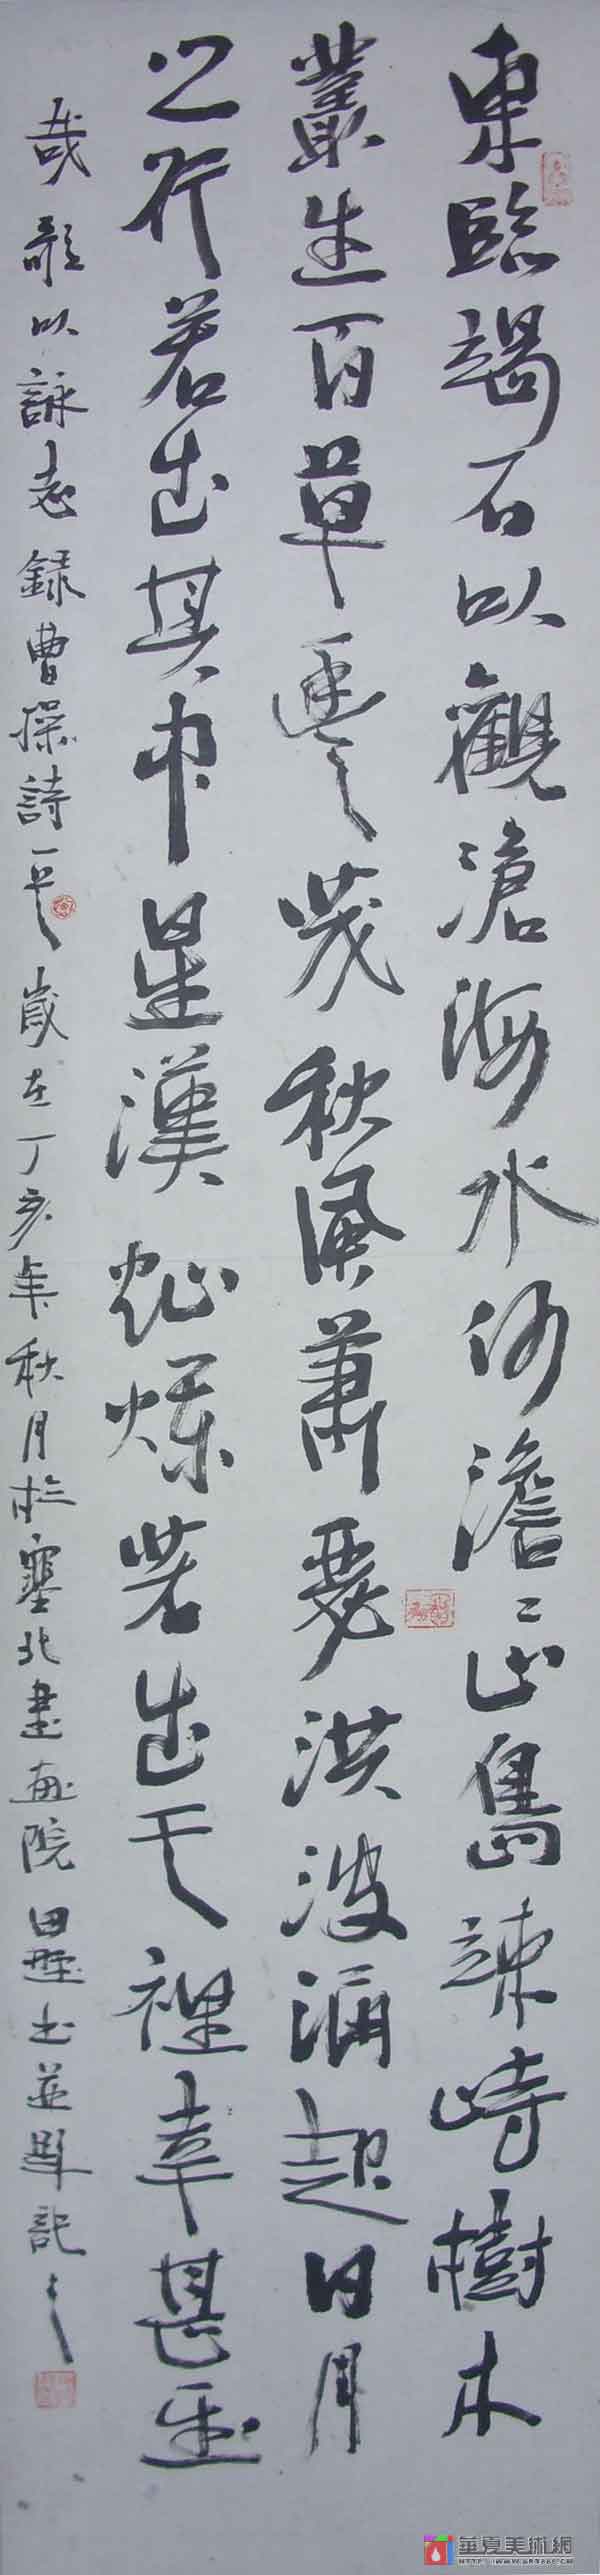 東臨碣石以觀滄海水何澹〻山島竦峙樹木
叢生百草豐茂秋風蕭瑟洪波涌起日月
之行若出其中星漢燦爛若出其裡幸甚至
哉歌以詠志錄曹操詩一首歲在丁亥年秋月於塞北書畫院田野書並題記之
華夏美術網